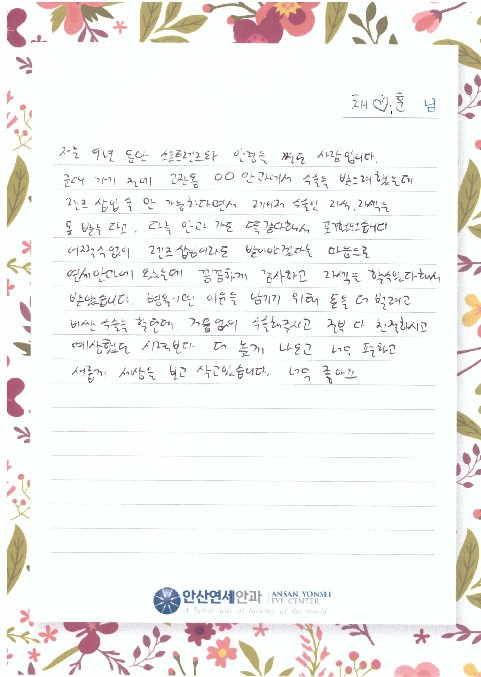 채♡훈 님
저는 9년 동안 소프트렌즈와 안경을 썼던 사람입니다.
군대 가기 전에 고잔동 OO안과에서 수술을 받으려했는데
렌즈삽입술만 가능하다면서 레이저 수술인 라식, 라섹은
못 받는다고. 다른 안과 가도 똑같다해서 포기했었습니다
어쩔수없이 렌즈삽입이라도 받아야겠다는 마음으로
연세안과에 왔는데 꼼꼼하게 검사하고 라섹을 할수있다해서
받았습니다. 병원이면 이윤을 남기기 위해 돈을 더 벌려고
비싼 수술을 할텐데 거짓없이 수술해주시고 전부 다 친절하시고
예상했던 시력보다 더 높게 나오고 너무 편하고
새롭게 세상을 보고 살고있습니다. 너무 좋아요
안산연세안과 ANSAN YONSEI EYE CENTER
A better way of looking at the world